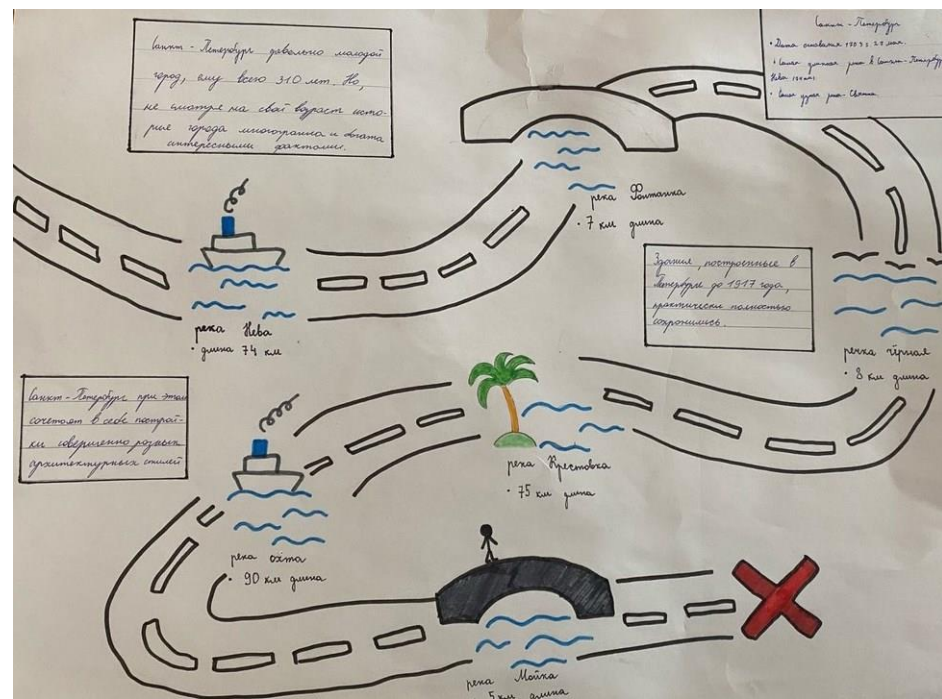 Санкт - Петербург довольно молодой
город, ему всего 310 лет. Но,
не смотря на свой возраст исто-
рия города многогранна и богата
интересными фактами.
Санкт - Петербург
• Дата основания 1703 г. 27 мая.
• Самая длинная река в Санкт-Петербур
Нева
• Самая река - Святка
река Фонтанка
• 7 км длина
река Нева
• длина 74 км
Здания, построенные в
Петербурге до 1917 года,
практически полностью
сохранились.
речка чёрная
• 8 км длина
Санкт-Петербург при этом
сочетает в себе построй-
ки совершенно разных
архитектурных стилей
река Крестовка
• 75 км длина
река охта
• 90 км длина
река Мойка
5 км длина